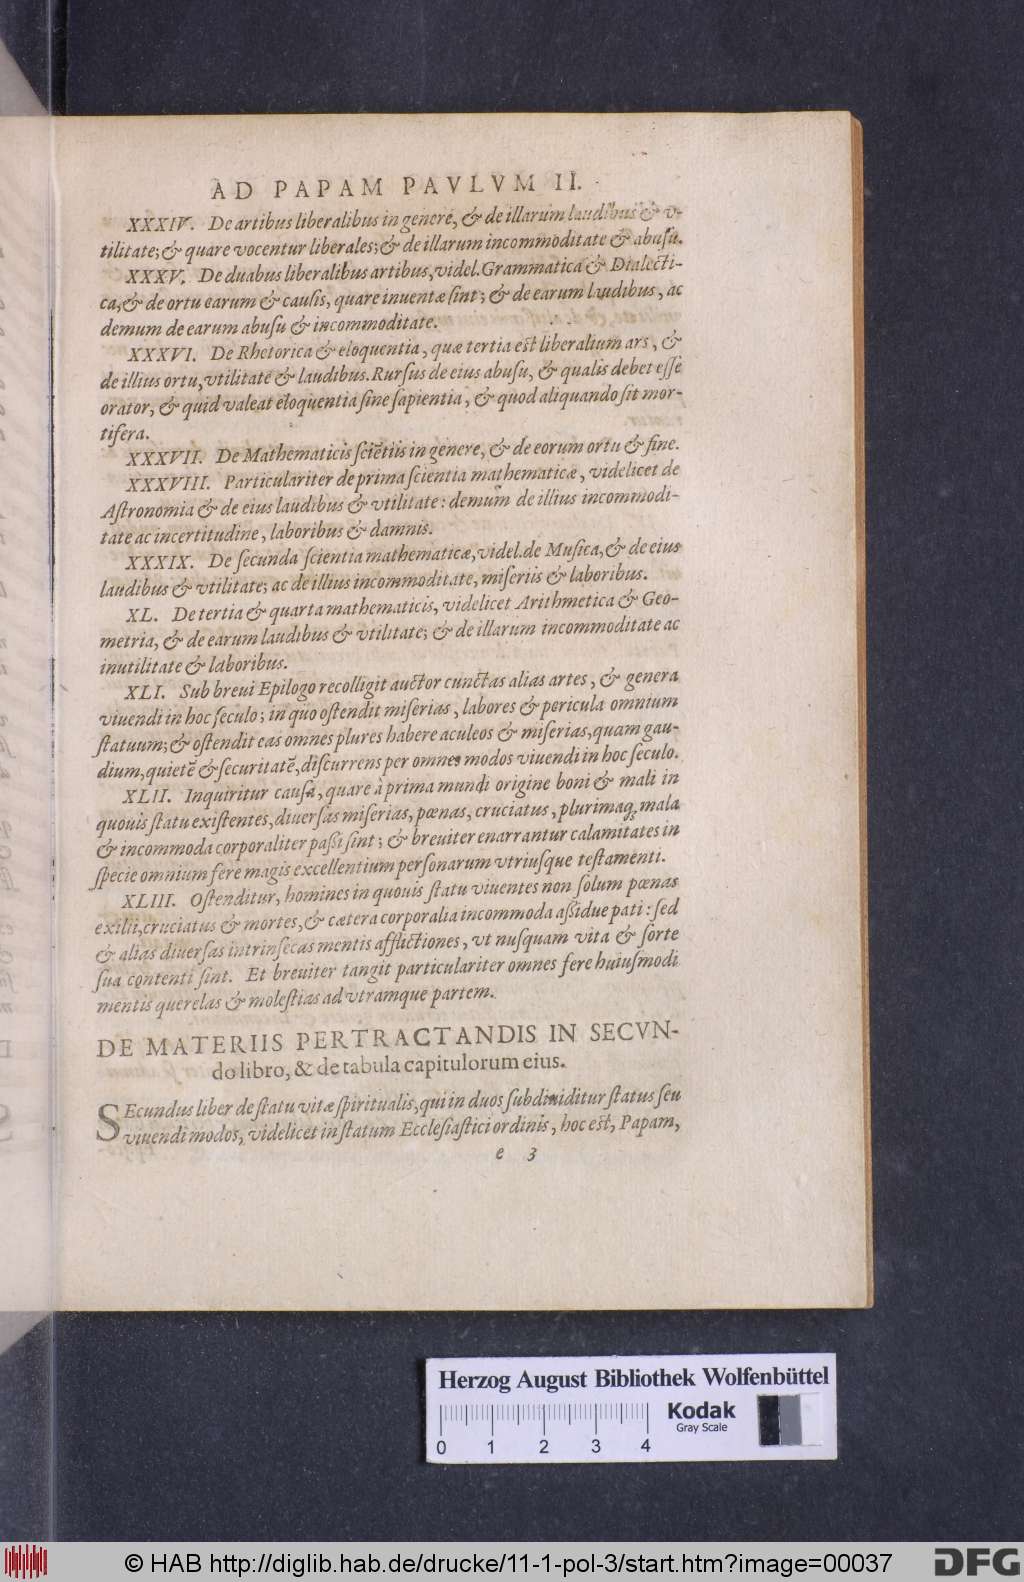 AD PAPAM PAVLVM II.
XXXIV. De artibus liberalibus in genere, & de illarum laudibus & v-
tilitate; & quare vocentur liberales; & de illarum incommoditate & abusu.
XXXV. De duabus liberalibus artibus, videl. Grammatica & Dialecti-
ca, & de ortu earum & causis, quare inuentæ sint; & de earum laudibus, ac
demum de earum abusu & incommoditate.
XXXVI. De Rhetorica & eloquentia, quæ tertia est liberalium ars, &
de illius ortu, vtilitate & laudibus. Rursus de eius abusu, & qualis debet esse
orator, & quid valeat eloquentia sine sapientia, & quod aliquando sit mor-
tifera.
XXXVII. De Mathematicis sciẽtiis in genere, & de eorum ortu & fine.
XXXVIII. Particulariter de prima scientia mathematicæ, videlicet de
Astronomia & de eius laudibus & vtilitate: demum de illius incommodi-
tate ac incertitudine, laboribus & damnis.
XXXIX. De secunda scientia mathematicæ, videl. de Musica, & de eius
laudibus & vtilitate; ac de illius incommoditate, miseriis & laboribus.
XL. De tertia & quarta mathematicis, videlicet Arithmetica & Geo-
metria, & de earum laudibus & vtilitate; & de illarum incommoditate ac
inutilitate & laboribus.
XLI. Sub breui Epilogo recolligit auctor cunctas alias artes, & genera
viuendi in hoc seculo; in quo ostendit miserias, labores & pericula omnium
statuum; & ostendit eas omnes plures habere aculeos & miserias, quam gau-
dium, quietẽ & securitatẽ, discurrens per omnes modos viuendi in hoc seculo.
XLII. Inquiritur causa, quare à prima mundi origine boni & mali in
quouis statu existentes, diuersas miserias, pœnas, cruciatus, plurimaq; mala
& incommoda corporaliter passi sint; & breuiter enarrantur calamitates in
specie omnium fere magis excellentium personarum vtriusque testamenti.
XLIII. Ostenditur, homines in quouis statu viuentes non solum pœnas
exilii, cruciatus & mortes, & cætera corporalia incommoda assidue pati: sed
& alias diuersas intrinsecas mentis afflictiones, vt nusquam vita & sorte
sua contenti sint. Et breuiter tangit particulariter omnes fere huiusmodi
mentis querelas & molestias ad vtramque partem.
DE MATERIIS PERTRACTANDIS IN SECVN-
do libro, & de tabula capitulorum eius.
SEcundus liber de statu vitæ spiritualis, qui in duos subdiuiditur status seu
viuendi modos, videlicet in statum Ecclesiastici ordinis, hoc est, Papam,
e 3
Herzog August Bibliothek Wolfenbüttel
0 1 2 3 4
Kodak
Gray Scale
© HAB http://diglib.hab.de/drucke/11-1-pol-3/start.htm?image=00037
DFG